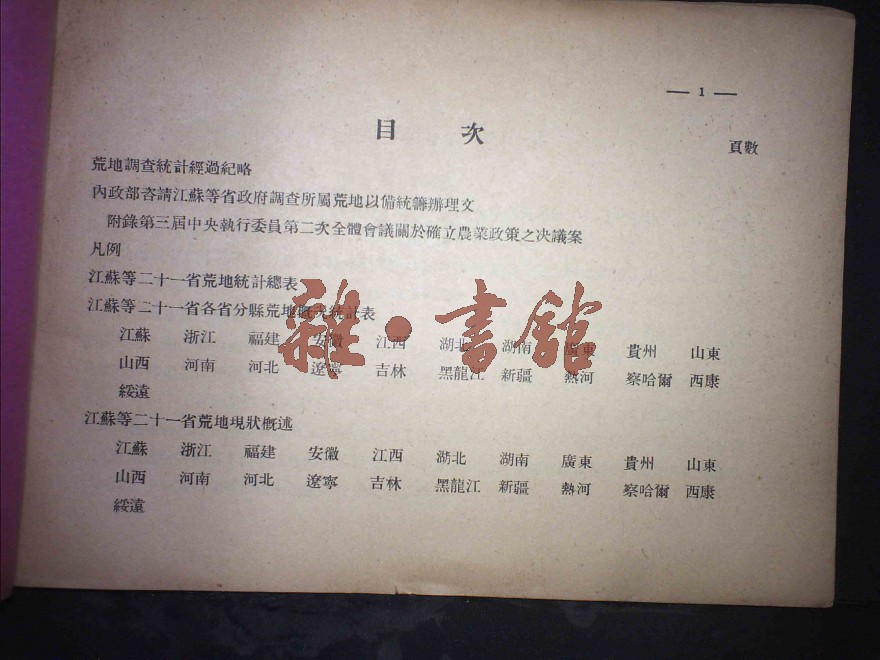 — 1 —
目 次
頁數
荒地調查統計經過紀略
內政部咨請江蘇等省政府調查所屬荒地以備統籌辦理文
附錄第三屆中央執行委員第二次全體會議關於確立農業政策之決議案
凡例
江蘇等二十一省荒地統計總表
江蘇等二十一省各省分縣荒地概况統計表
江蘇 浙江 福建 安徽 江西 湖北 湖南 廣東 貴州 山東
山西 河南 河北 遼寧 吉林 黑龍江 新疆 熱河 察哈爾 西康
綏遠
江蘇等二十一省荒地現狀概述
江蘇 浙江 福建 安徽 江西 湖北 湖南 廣東 貴州 山東
山西 河南 河北 遼寧 吉林 黑龍江 新疆 熱河 察哈爾 西康
綏遠
雜·書館